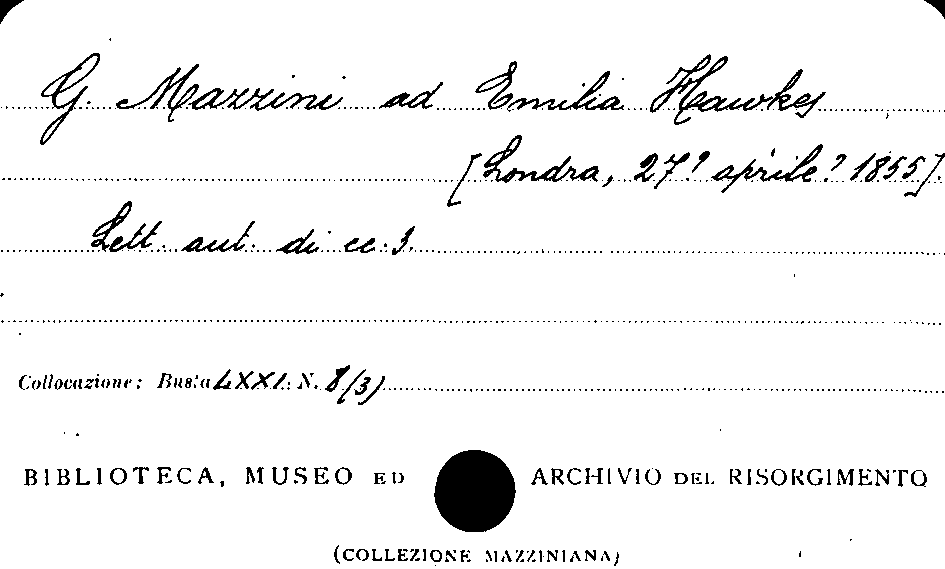 G. Mazzini ad Emilia Hawkes
[Londra, 27? aprile? 1855].
Lett. aut. di cc. 3.
Collocazione: Busta LXXI. N. 8/(3)
BIBLIOTECA, MUSEO ED ARCHIVIO DEL RISORGIMENTO
(COLLEZIONE MAZZINIANA)